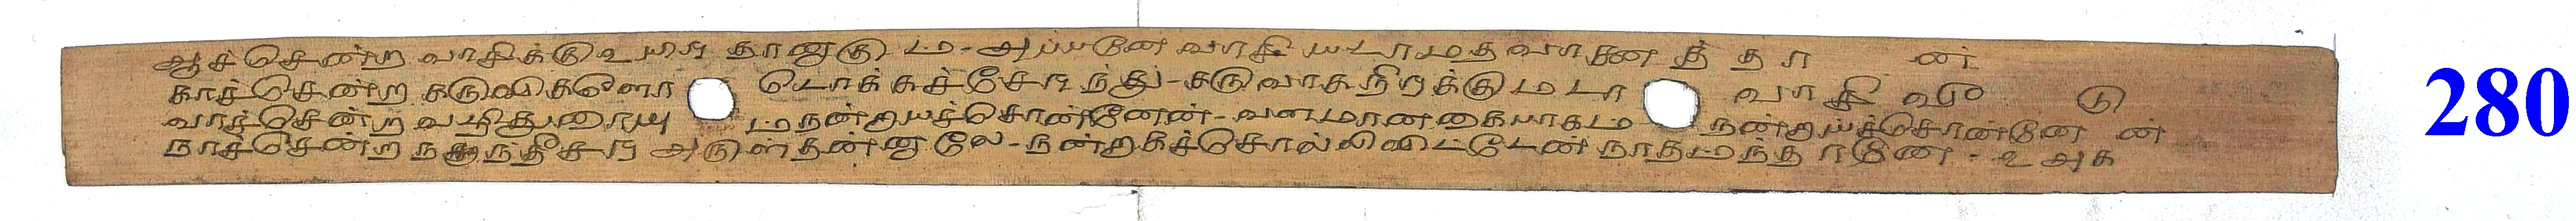 ஆச்சென்ற வாசிக்குஉயிர் தானாகும் - அப்பனே வாசியடாமதவானைத்தான்
காச்சென்ற கருவிகளோ டொக்கச்சேர்ந்து - கருவாகநிறக்குமடா வாசிவீடு
வாச்சென்ற வழிதுறையும்நன்றாயச்சொன்னேன் - வளமானகையாகம் நன்றாய்ச்சொன்னேன்
நாச்சென்ற நந்தீசர் அருள்தன்னாலே - நன்றாகச்சொல்லிவிட்டேன் நாதமந்தானே - உஅக
280